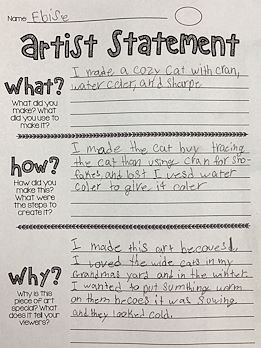 Name Eloise
Artist Statement
What?
What did you
make? What
did you use to
make it?
I made a cozy cat with cran,
water coler, and sharpe
how?
How did you
make this?
What were
the steps to
create it?
I made the cat buy tracing
the cat than using cran for sno-
fakes, and lost I uesd water
coler to give it coler
Why?
Why is this
piece of art
special? What
does it tell your
viewers?
I made this art becaves I
I loved the wide cats in my
Grandmas yard and in the winter
I wanted to put sumthing worm
on them becoes it was sowing
and they looked cold.